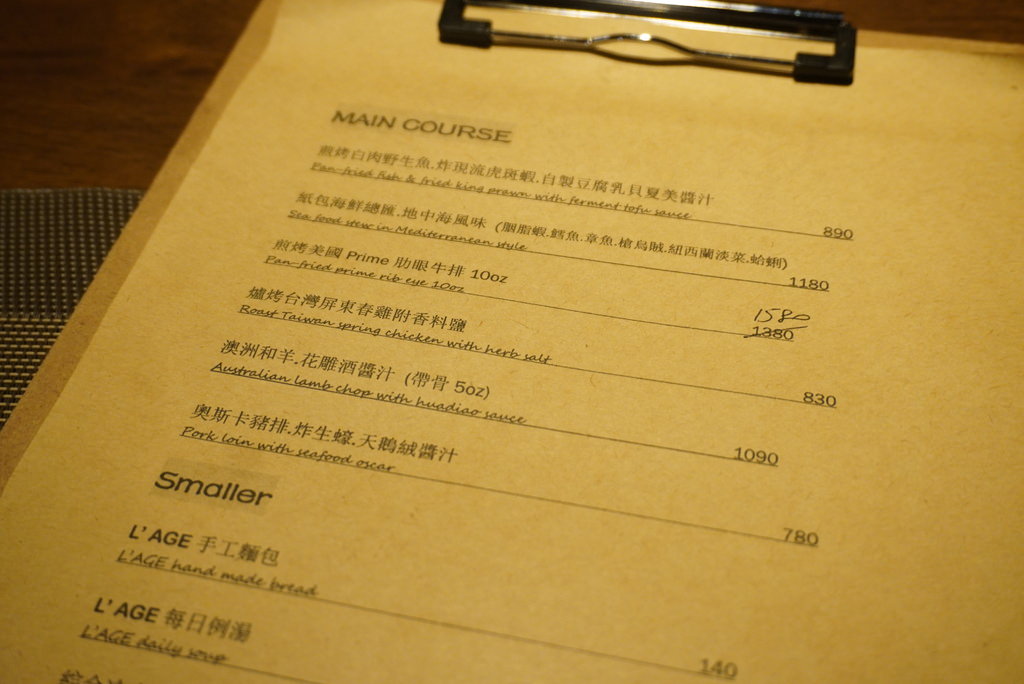 MAIN COURSE
煎烤白肉野生魚.炸現流虎斑蝦.自製豆腐乳貝夏美醬汁
Pan-fried fish & fried king prawn with ferment tofu sauce 890
紙包海鮮總匯.地中海風味 (胭脂蝦.鱈魚.章魚.槍烏賊.紐西蘭淡菜.蛤蜊)
Sea food stew in Mediterranean style 1180
煎烤美國 Prime 肋眼牛排 10oz 1580
Pan-fried prime rib eye 10oz 1380
爐烤台灣屏東春雞附香料鹽
Roast Taiwan spring chicken with herb salt 830
澳洲和羊.花雕酒醬汁 (帶骨 5oz)
Australian lamb chop with huadiao sauce 1090
奧斯卡豬排.炸生蠔.天鵝絨醬汁
Pork loin with seafood oscar 780
Smaller
L' AGE 手工麵包
L'AGE hand made bread 140
L' AGE 每日例湯
L'AGE daily soup
綜合